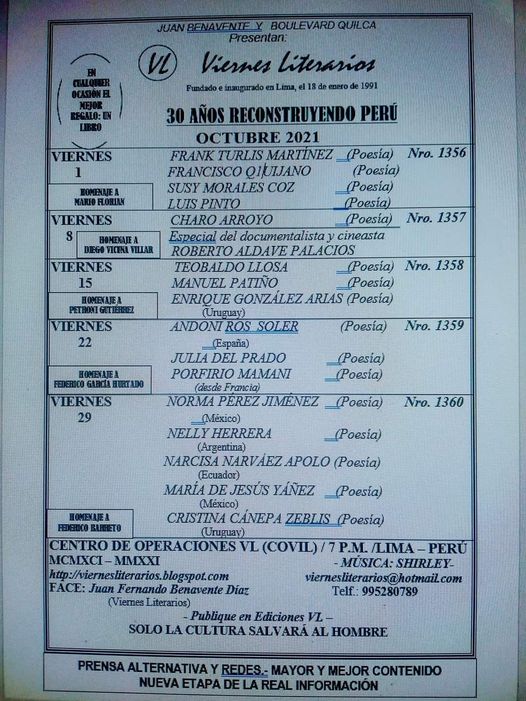 JUAN BENAVENTE Y BOULEVARD QUILCA
Presentan:
EN CUALQUIER OCASIÓN EL MEJOR REGALO: UN LIBRO
VL Viernes Literarios
Fundado e inaugurado en Lima, el 18 de enero de 1991
30 AÑOS RECONSTRUYENDO PERÚ
OCTUBRE 2021
VIERNES FRANK TURLIS MARTÍNEZ (Poesía) Nro. 1356
1 FRANCISCO Q1UIJANO (Poesía)
HOMENAJE A MARIO FLORIAN
SUSY MORALES COZ (Poesía)
LUIS PINTO (Poesía)
VIERNES CHARO ARROYO (Poesía) Nro. 1357
8 HOMENAJE A DIEGO VICUNA VILLAR
Especial del documentalista y cineasta
ROBERTO ALDAVE PALACIOS
VIERNES TEOBALDO LLOSA (Poesía) Nro. 1358
15 MANUEL PATIÑO (Poesía)
HOMENAJE A PETRONI GUTIERREZ
ENRIQUE GONZÁLEZ ARIAS (Poesía)
(Uruguay)
VIERNES ANDONI ROS SOLER (Poesía) Nro. 1359
22 (España)
JULIA DEL PRADO (Poesía)
HOMENAJE A FEDERICO GARCÍA HURTADO
PORFIRIO MAMANI (Poesía)
(desde Francia)
VIERNES NORMA PÉREZ JIMÉNEZ (Poesía) Nro. 1360
29 (México)
NELLY HERRERA (Poesía)
(Argentina)
NARCISA NARVÁEZ APOLO (Poesía)
(Ecuador)
MARÍA DE JESÚS YÁÑEZ (Poesía)
(México)
HOMENAJE A FEDERICO BARRETO
CRISTINA CÁNEPA ZEBLIS (Poesía)
(Uruguay)
CENTRO DE OPERACIONES VL (COVIL) / 7 P.M. /LIMA – PERÚ
MCMXCI – MMXXI - MÚSICA: SHIRLEY-
http://viernesliterarios.blogspot.com viernesliterarios@hotmail.com
FACE: Juan Fernando Benavente Díaz Telf.: 995280789
(Viernes Literarios)
- Publique en Ediciones VL –
SOLO LA CULTURA SALVARÁ AL HOMBRE
PRENSA ALTERNATIVA Y REDES.- MAYOR Y MEJOR CONTENIDO
NUEVA ETAPA DE LA REAL INFORMACIÓN